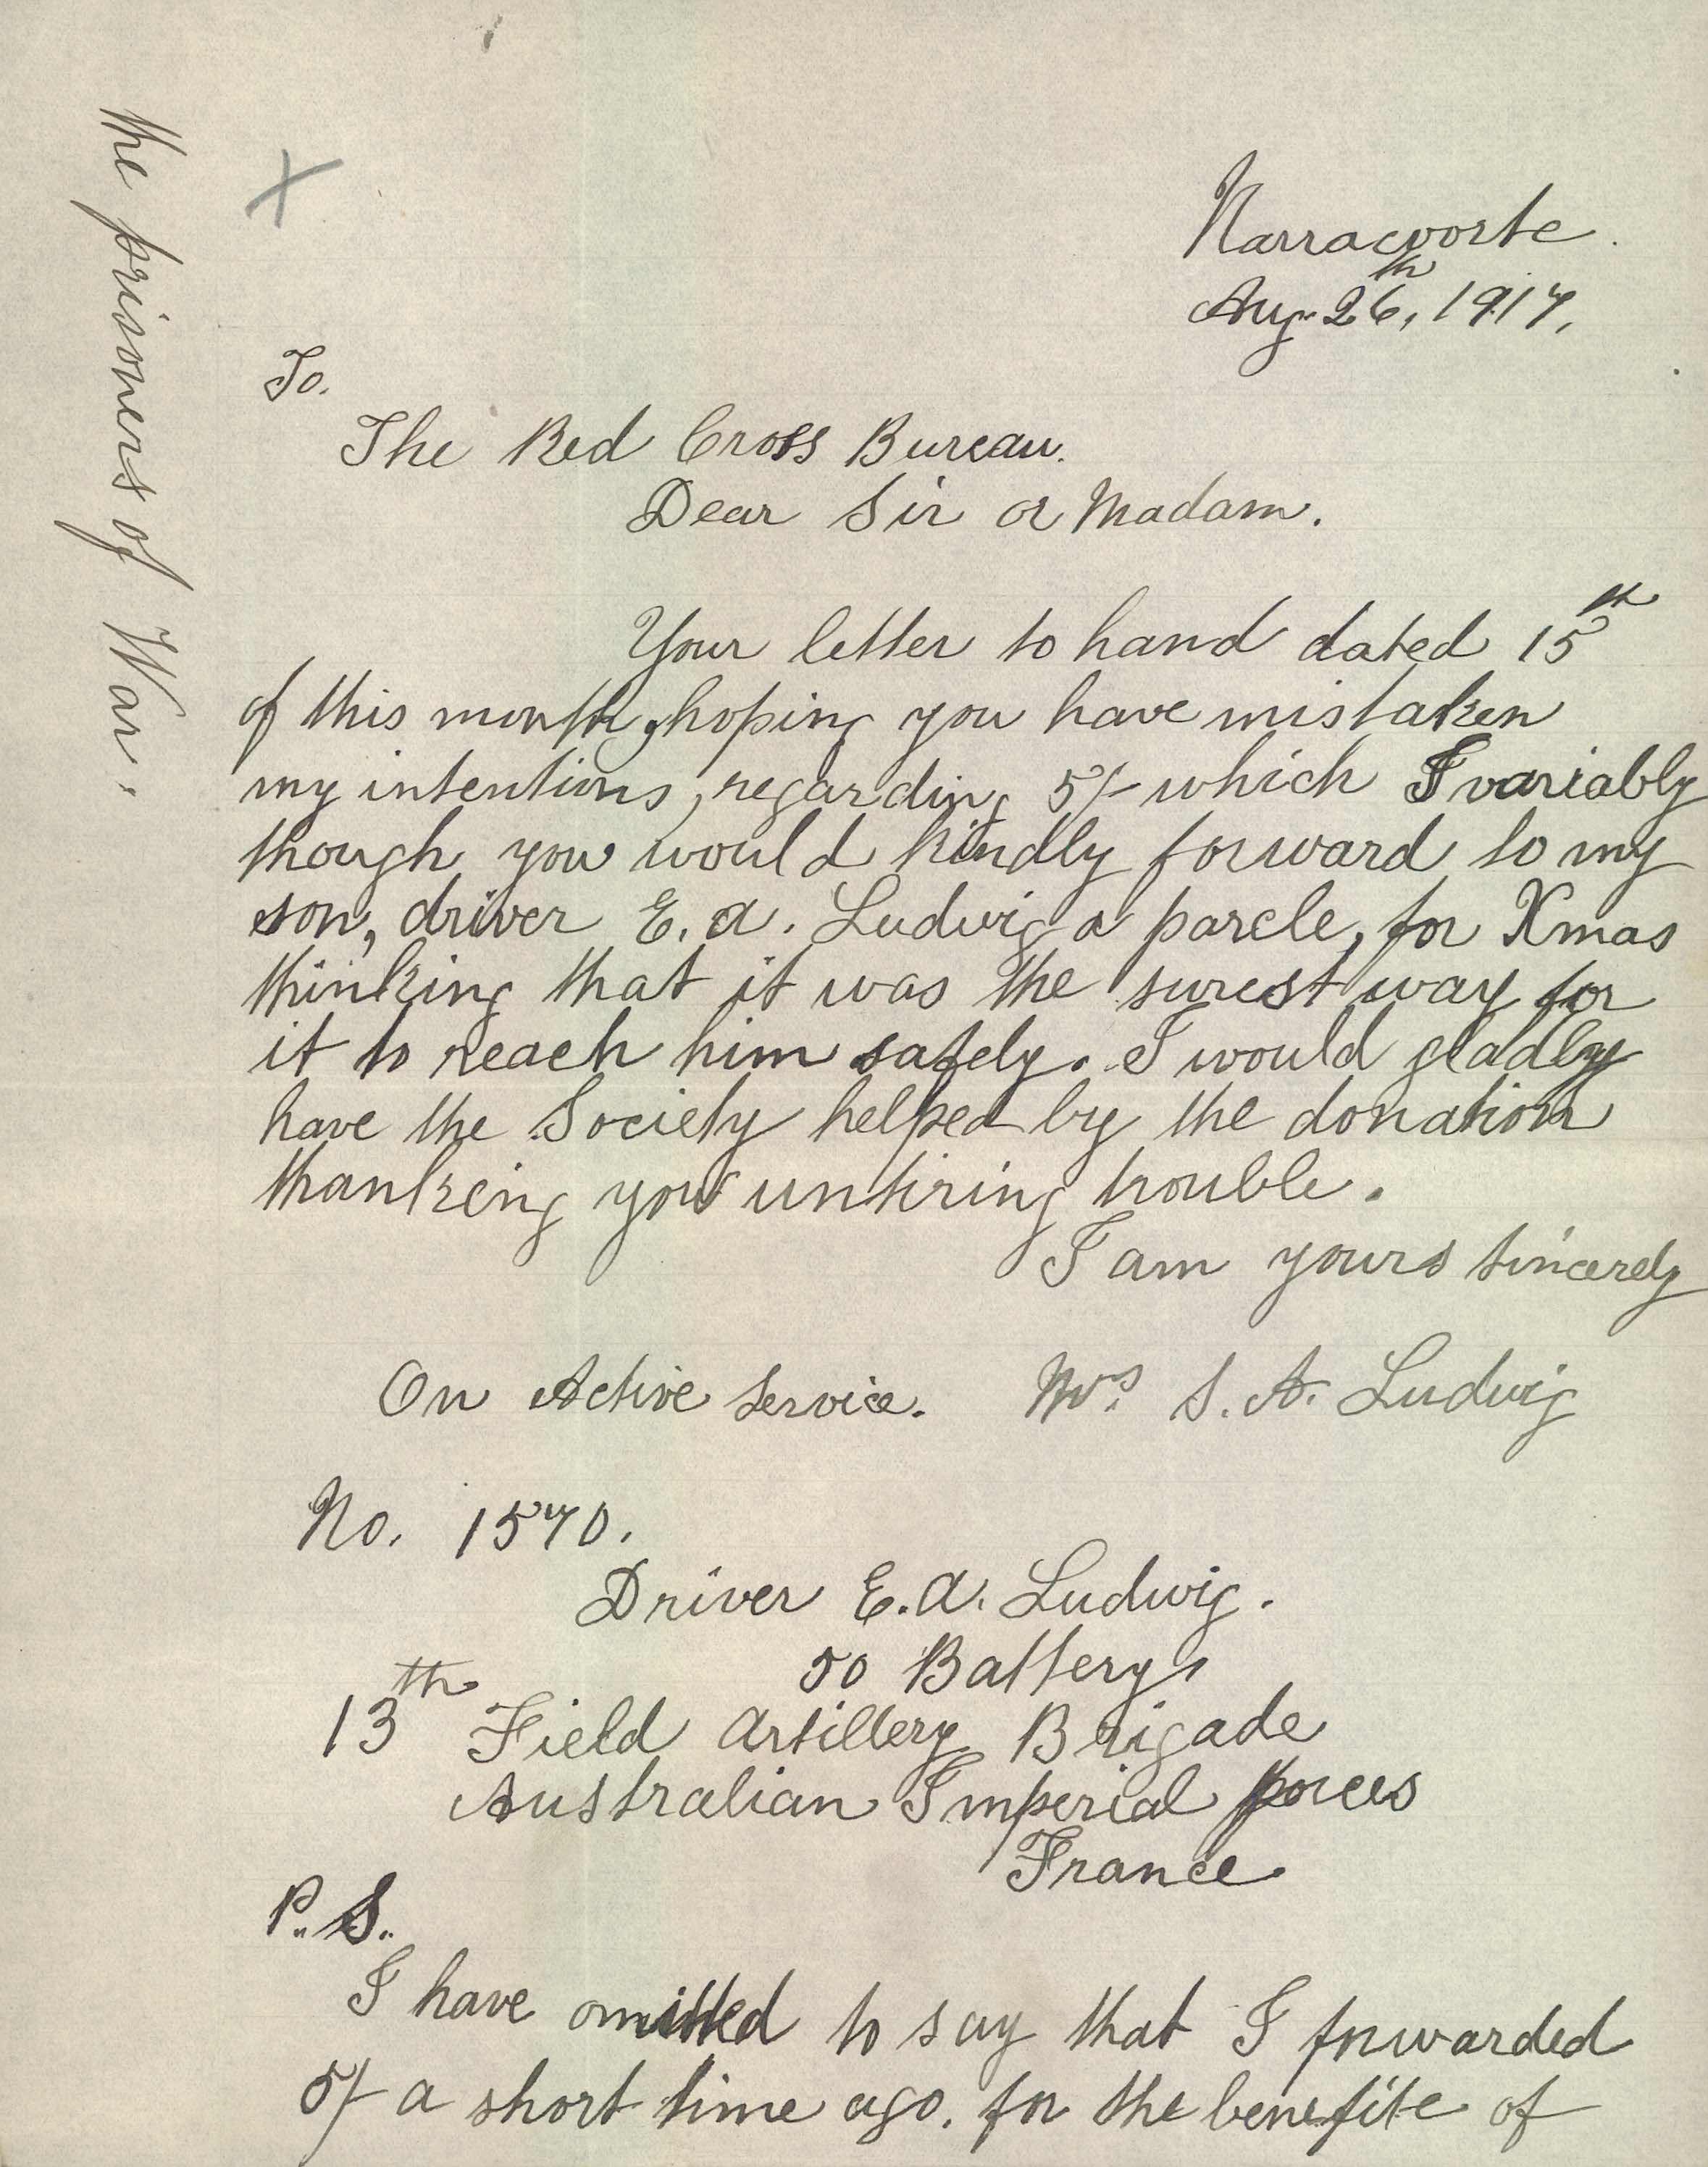 Narracoorte.
Aug. 26th, 1917,
To.
The Red Cross Bureau.
Dear Sir or Madam.
Your letter to hand dated 15th
of this month, hoping you have mistaken
my intentions, regarding 5/- which I variably
though you would kindly forward to my
son, driver E. A. Ludwig a parcle, for Xmas
thinking that it was the surest way for
it to reach him safely. I would gladly
have the Society helped by the donation
thanking your untiring trouble.
I am yours sincerely
On Active Service. Mrs S. A. Ludwig
No. 1570.
Driver E. A. Ludwig.
50 Battery,
13th Field Artillery Brigade
Australian Imperial forces
France.
P.S.
I have omitted to say that I forwarded
5/- a short time ago. for the benefite of
the prisoners of War.